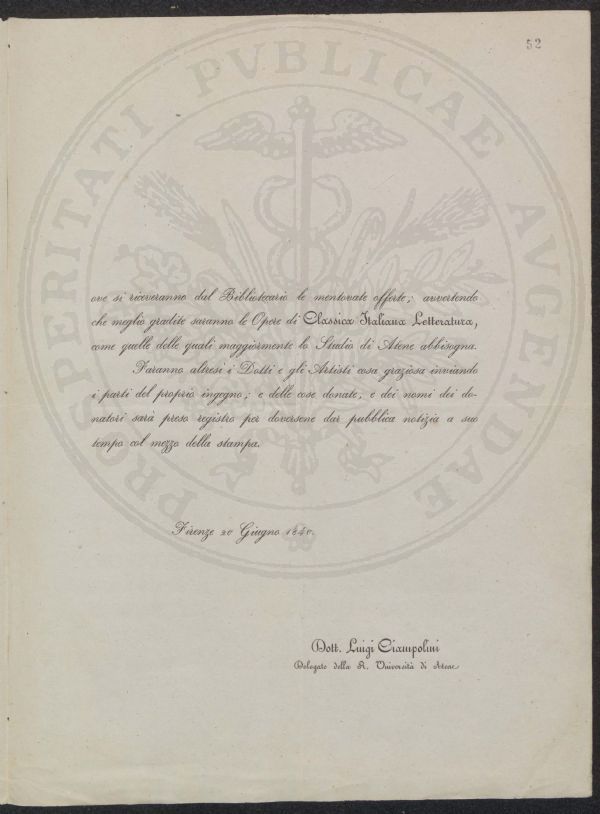 52
PROSPERITATI PVBLICAE AVGENDAE
ove si riceveranno dal Bibliotecario le mentovate offerte; avvertendo
che meglio gradite saranno le Opere di Classica Italiana Letteratura,
come quelle delle quali maggiormente lo Studio di Atene abbisogna.
Faranno altresì i Dotti e gli Artisti cosa graziosa inviando
i parti del proprio ingegno; e delle cose donate, e dei nomi dei do-
natori sarà preso registro per doversene dar pubblica notizia a suo
tempo col mezzo della stampa.
Firenze 20 Giugno 1840.
Dott. Luigi Ciampolini
Delegato della R. Università di Atene